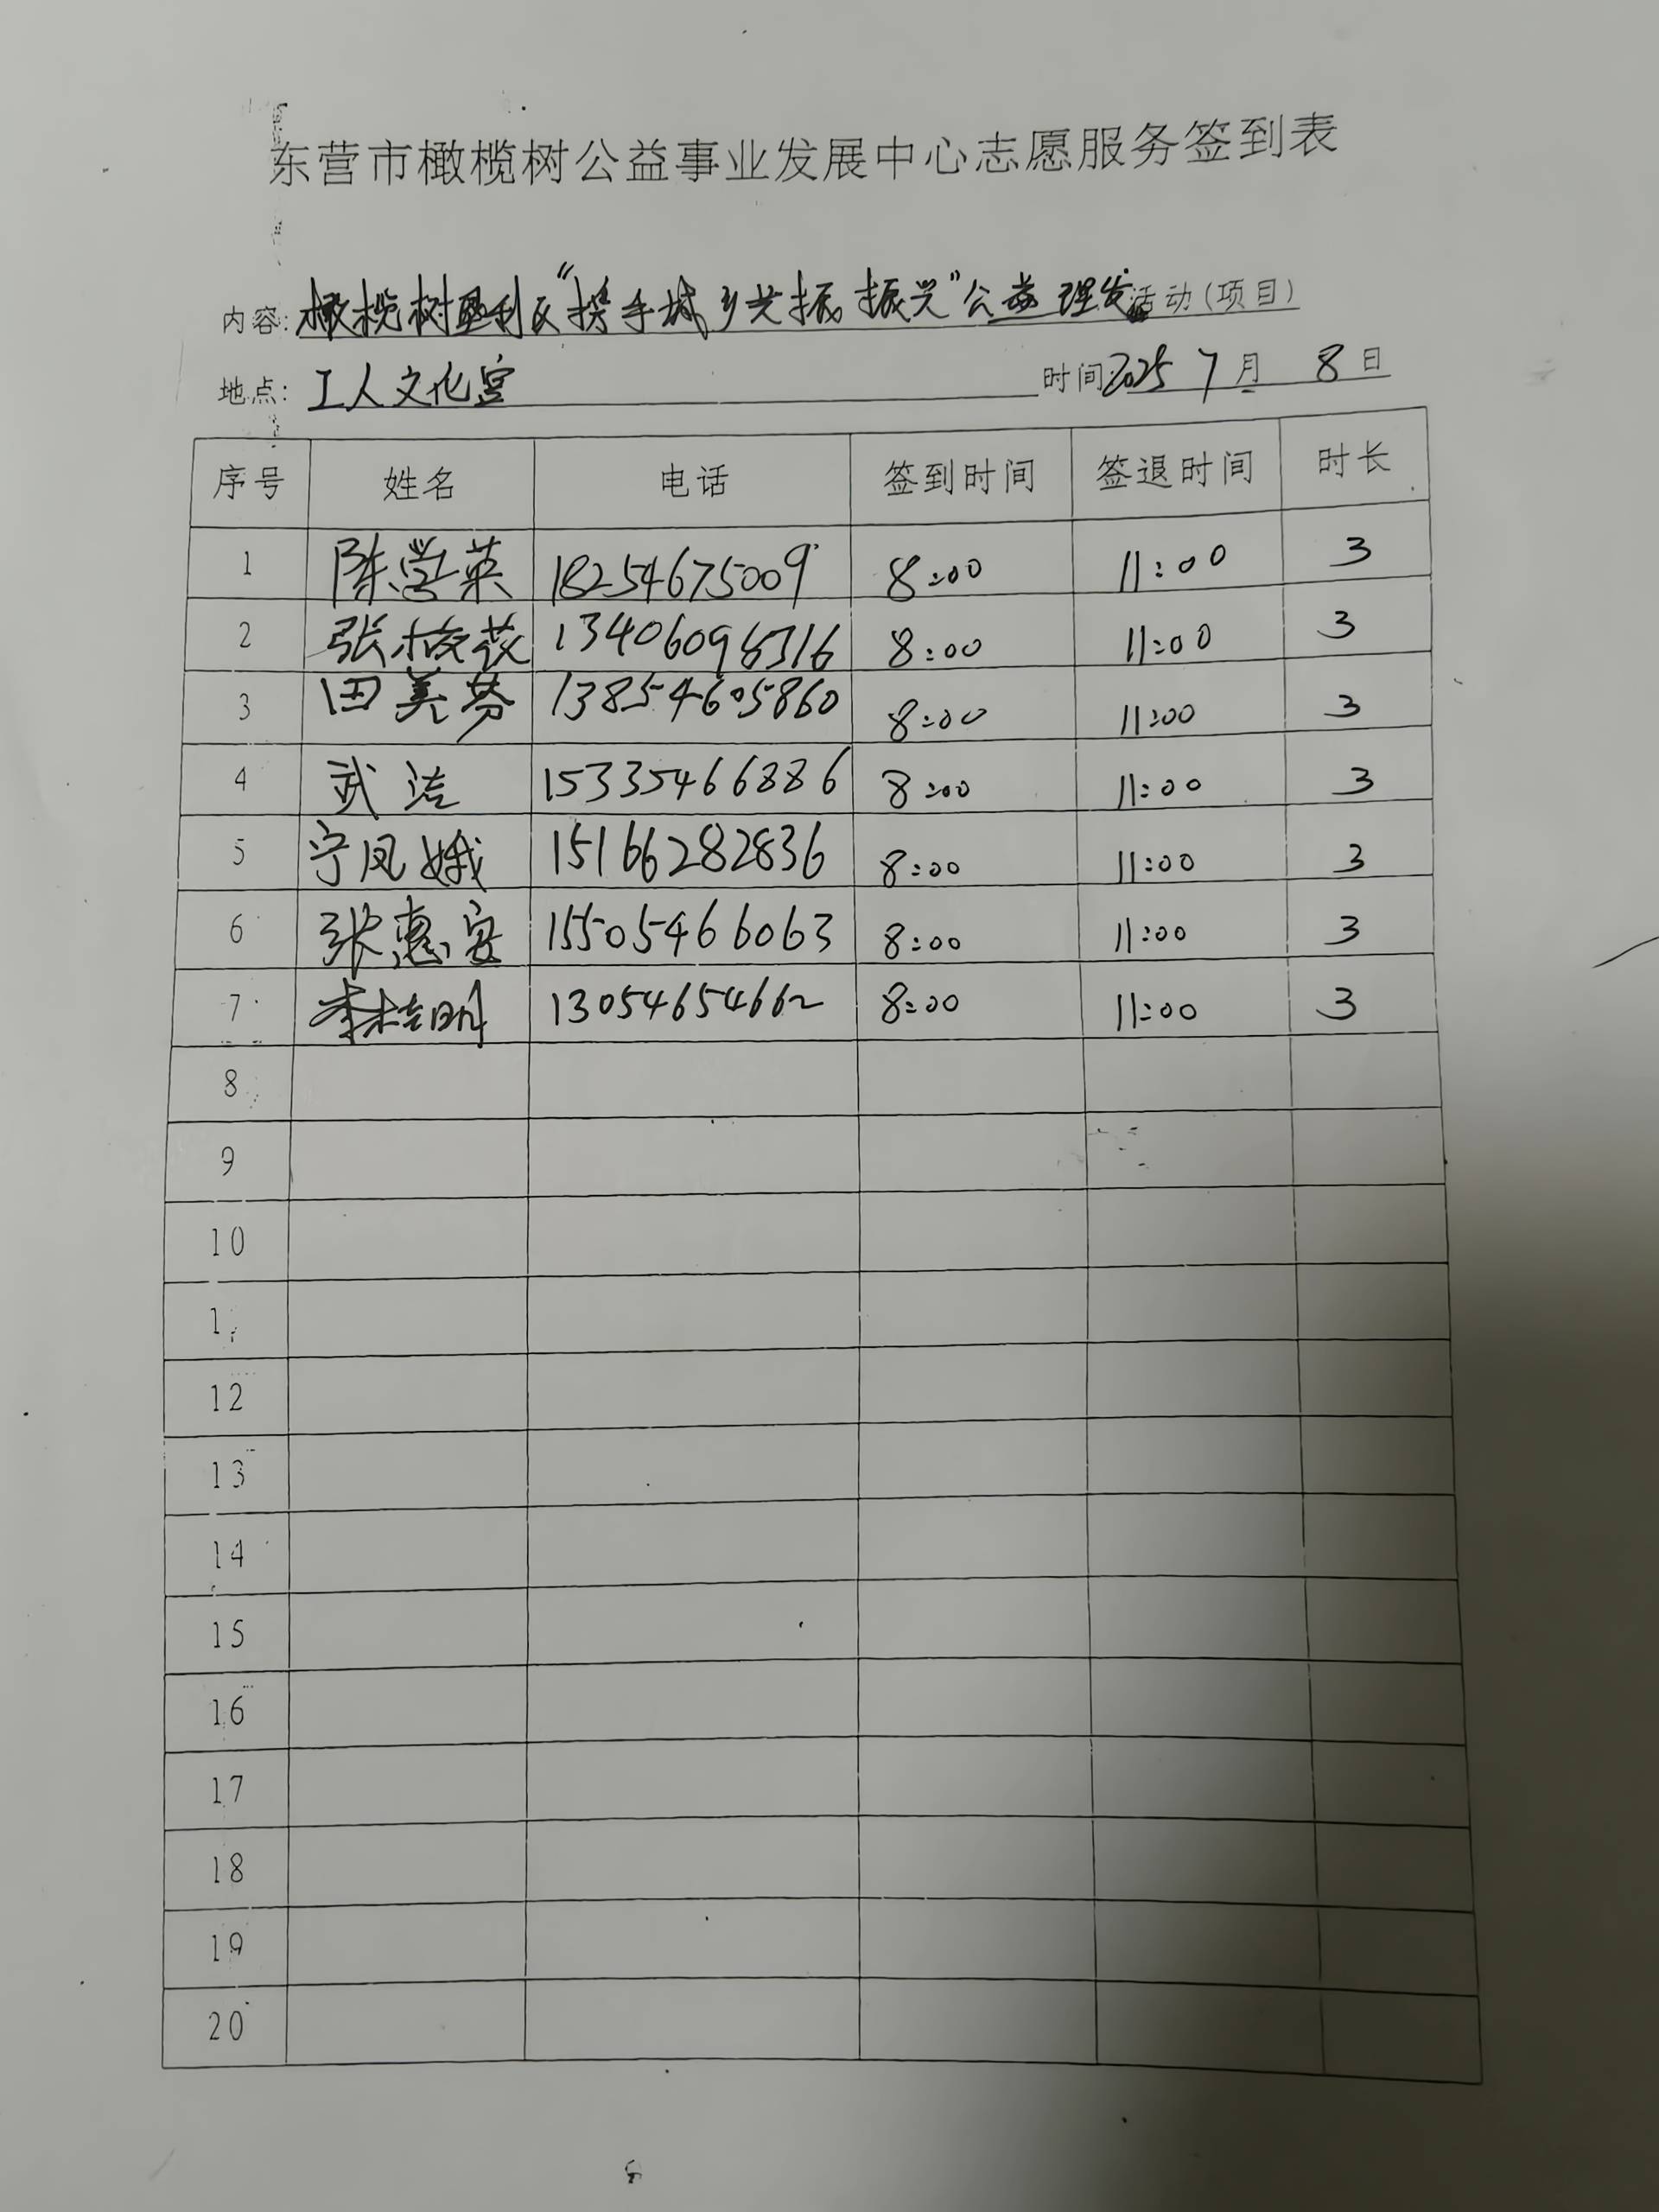 东营市橄榄树公益事业发展中心志愿服务签到表
内容: 橄榄树垦利区“携手城乡共振 振兴”公益理发活动(项目)
地点: 工人文化宫 时间2025 7月 8日
序号 姓名 电话 签到时间 签退时间 时长
1 陈学英 18254675009 8:00 11:00 3
2 张 1340609 316 8:00 11:00 3
3 田美芬 13854605860 8:00 11:00 3
4 武洁 15335466886 8:00 11:00 3
5 宁凤娥 15166282836 8:00 11:00 3
6 张惠 15505466063 8:00 11:00 3
7 李桂明 13054654662 8:00 11:00 3
8
9
10
1
12
13
14
15
16
17
18
19
20